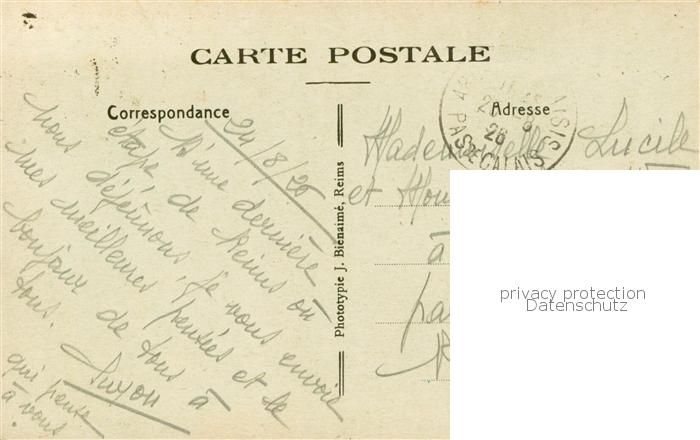 CARTE POSTALE
Correspondance
Adresse
24/8/26
D'une dernière
étape de Reims où
nous déjeunons, je vous envoie
mes meilleures pensées et le
bonjour de tous à
tous.
Suzon
qui pense
à vous
Phototypie J. Bienaimé, Reims
26
PAS DE CALAIS
Mademoiselle Lucile
et
à
privacy protection
Datenschutz